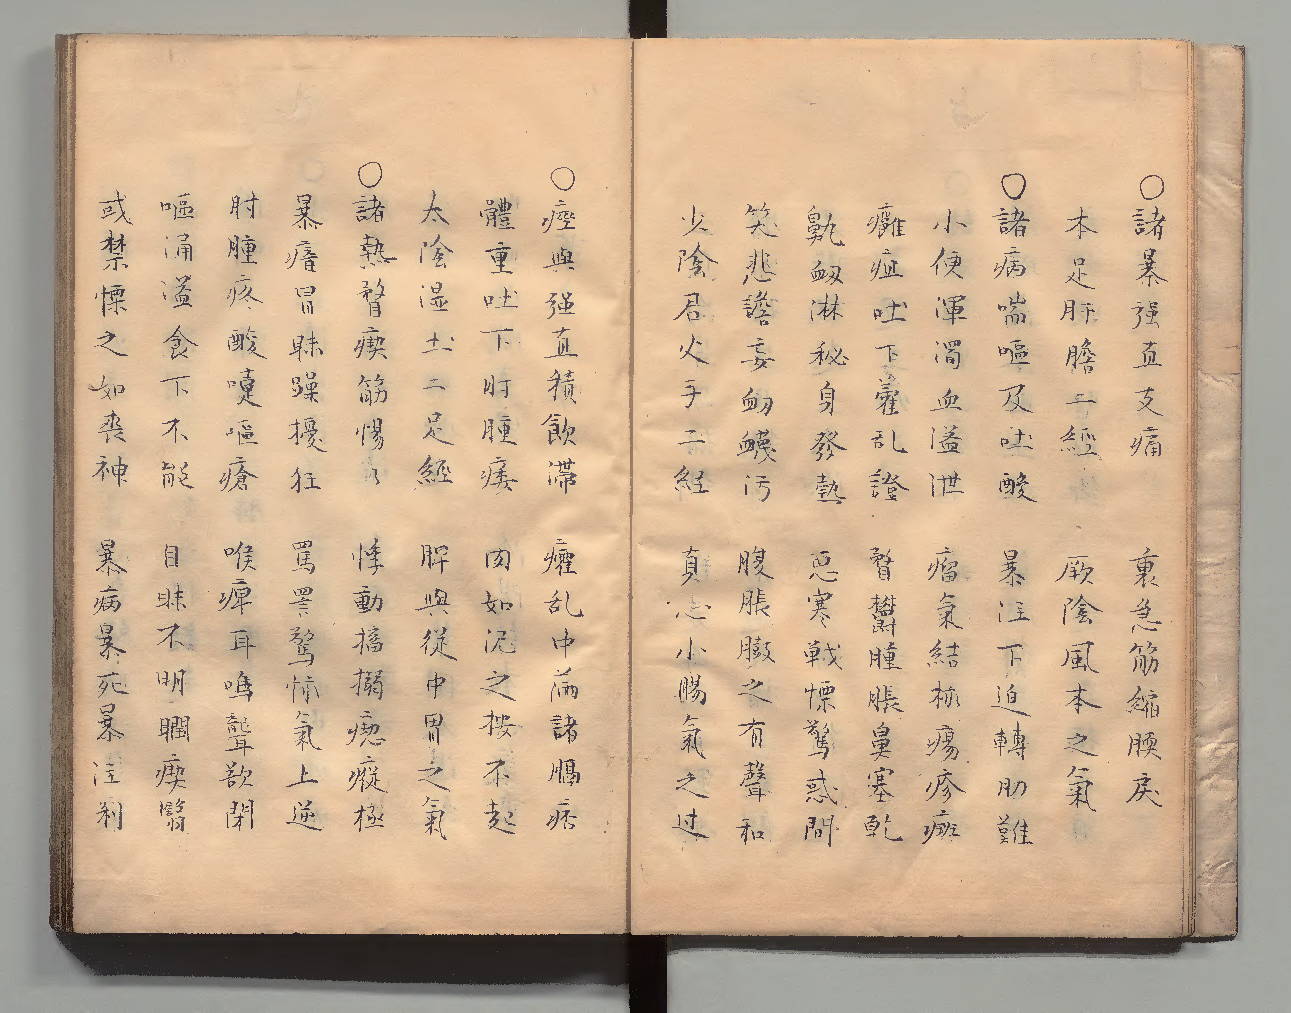 ○諸暴强直支痛　裏急筋縮腰戾
本足肝膽二經　厥陰風木之氣
○諸病喘嘔及吐酸　暴注下迫轉肋難
小便渾濁血溢泄　瘤氣結核瘍疹癍
癰疽吐下霍乱證　瞀鬱腫脹鼻塞乾
鼽衂淋秘身發熱　惡寒戰慄驚惑間
笑悲譫妄衂衊汚　腹脹皷之有聲和
少陰君火手二経　真心小腸氣之过
○痙與强直積飲滯　癨乱中滿諸膈痞
體重吐下胕腫痿　肉如泥之按不起
太陰湿土二足經　脾與從中胃之氣
○諸熱瞀瘈筋惕　悸動搐搦瘛瘲極
暴瘖冒昧躁擾狂　罵詈驚怖氣上逆
胕腫疼酸嚏嘔瘡　喉痺耳鳴聾欲閉
嘔涌溢食下不能　目昧不明瞤瘈翳
或禁慄之如喪神　暴病暴死暴注利